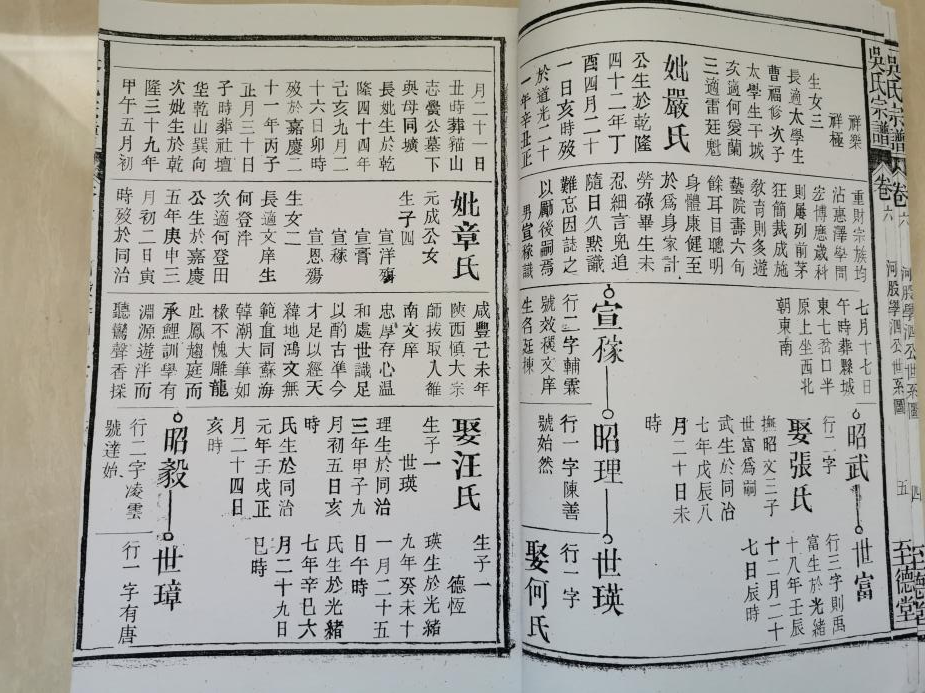 吳氏宗譜
卷六
河股學泗公世系圖
五
至德堂
祥樂
祥極
生女三
長適太學生
曹福修次子
太學生于城
亥適何愛蘭
三適雷廷魁
妣嚴氏
公生於乾隆
四十二年丁
酉四月二十
一日亥時殁
於道光二十
一年辛丑正
重財宗族均
沾惠澤學問
宏博應歲科
則屢列前茅
狂簡裁成施
敎育則灸遊
藝院壽六旬
餘耳目聰明
身體康健至
於爲身家計
勞碌畢生未
忍細言兎追
隨日久黙識
難忘因誌之
以厲後嗣焉
男宣稼識
七月十七日
午時葬縣城
東七岔口半
原上坐西北
朝東南
宣稼
行二字輔霖
號效稷文庠
生名廷棟
昭武
行二字
娶張氏
撫昭文三子
世富爲嗣
武生於同治
七年戊辰八
月二十日未
時
昭理
行一字陳善
號始然
世富
行三字則禹
富生於光緒
十八年壬辰
十二月二十
七日辰時
世瑛
行一字
娶何氏
月二十一日
丑時葬貓山
志譽公墓下
與母同壙
長妣生於乾
隆四十四年
己亥九月二
十六日卯時
殁於嘉慶二
十一年丙子
正月三十日
子時葬社壇
垄乾山巽向
次妣生於乾
隆三十九年
甲午五月初
妣章氏
元成公女
生子四
宣洋殤
宣膏
宣稼
宣恩殤
生女二
長適文庠生
何登泮
次適何登田
公生於嘉慶
五年庚申三
月初二日寅
時殁於同治
咸豐己未年
陝西慎大宗
師拔取人雒
南文庠
忠厚存心温
和處世識足
以酌古凖今
才足以經天
緯地鴻文無
範直同蘇海
韓潮大筆如
椽不愧雕龍
吐鳳趨庭而
承鯉訓學有
淵源遊泮而
聽鸞聲香採
娶汪氏
生子一
世瑛
理生於同治
三年甲子九
月初五日亥
時
氏生於同治
元年壬戌正
月二十四日
亥時
昭毅
行二字凌雲
號達始
生子一
德恆
瑛生於光緒
九年癸未十
一月二十五
日午時
氏生於光緒
七年辛巳六
月二十九日
巳時
世璋
行一字有唐